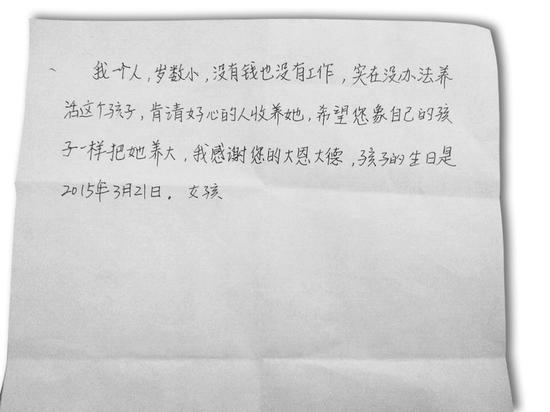 我一个人，岁数小，没有钱也没有工作，实在没办法养
活这个孩子，肯请好心的人收养她，希望您象自己的孩
子一样把她养大，我感谢您的大恩大德，孩子的生日是
2015年3月21日。女孩